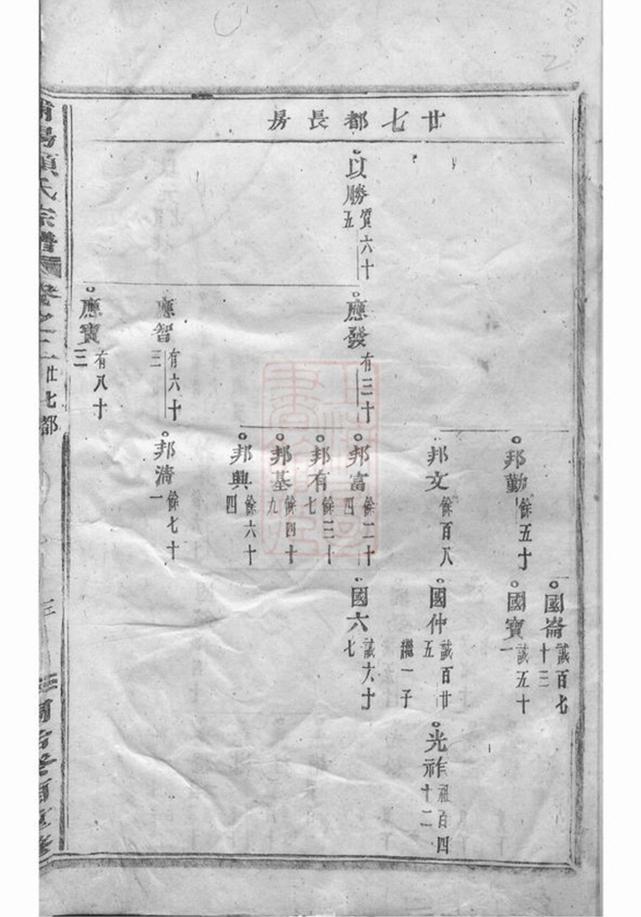 廿七都長房
以勝
質六十
五
應發
有三十
應智
有六十
三
應寶
有八十
三
邦勤
餘五十
邦文
餘百八
邦富
餘二十
四
邦有
餘三十
七
邦基
餘四十
九
邦興
餘六十
四
邦清
餘七十
一
國崙
誠百七
十三
國寶
誠五十
一
國仲
誠百廿
五
繼一子
國六
誠六十
七
光祚
祖百四
十二
項氏宗譜
卷之二
廿七都
三